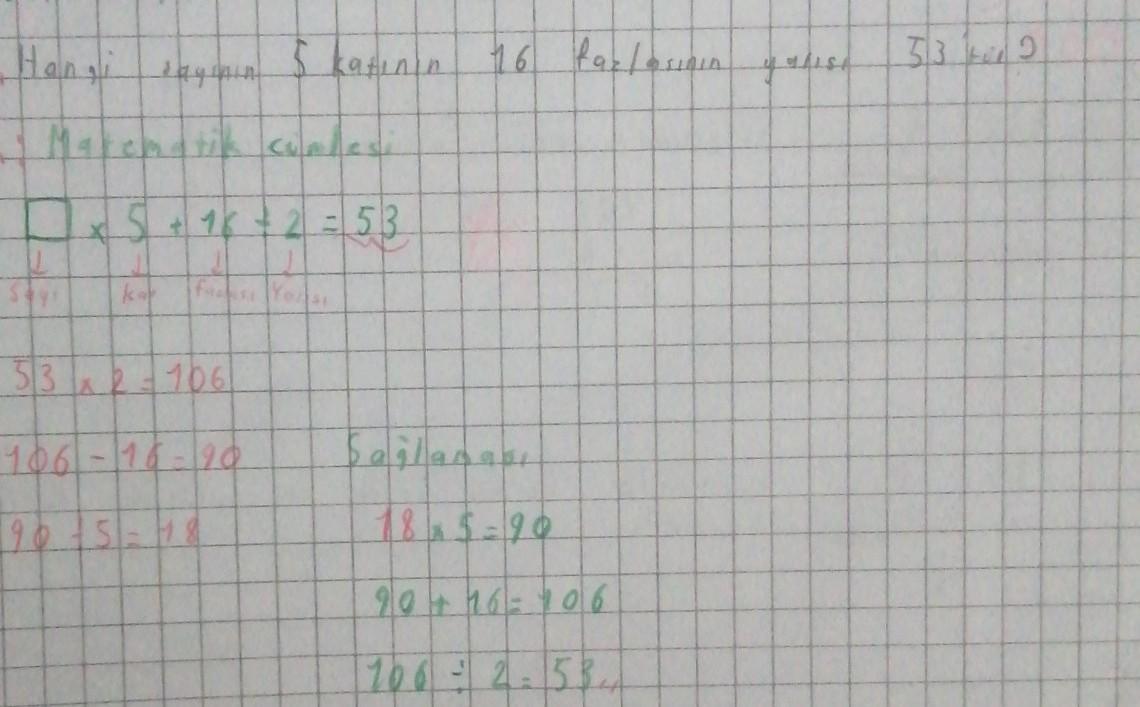 Hangi sayının 5 katının 16 fazlasının yarısı 53'tür?
Matematik cümlesi
□ x 5 + 16 ÷ 2 = 53
Sayı kat fazlası Yarısı
53 x 2 = 106
106 - 16 = 90
90 ÷ 5 = 18
Sağlaması
18 x 5 = 90
90 + 16 = 106
106 ÷ 2 = 53